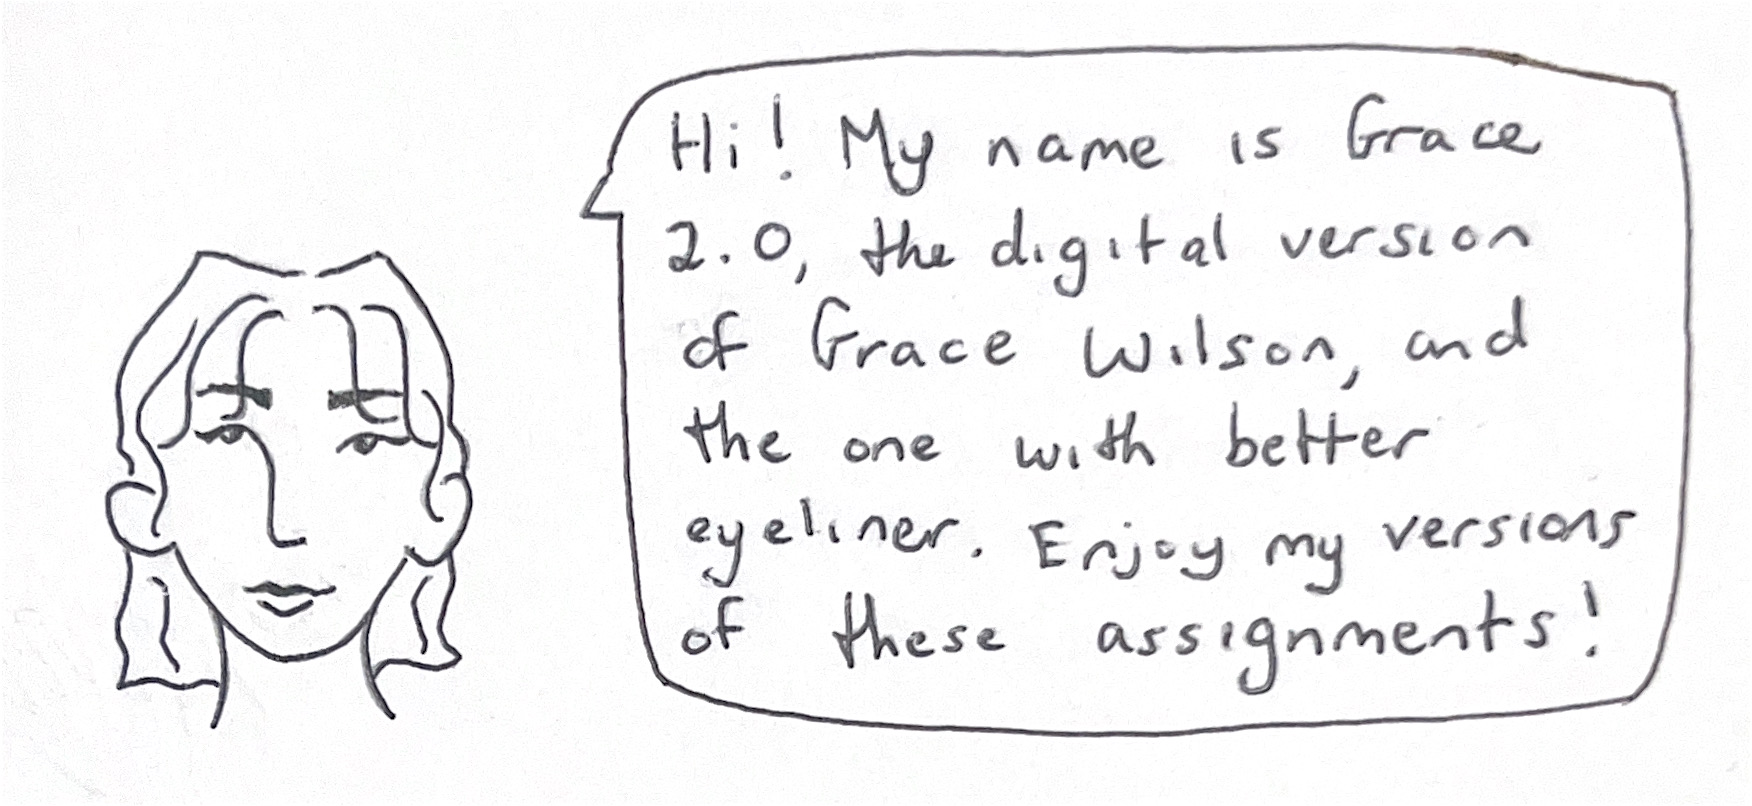 Hi! My name is Grace
2.0, the digital version
of Grace Wilson, and
the one with better
eyeliner. Enjoy my versions
of these assignments!